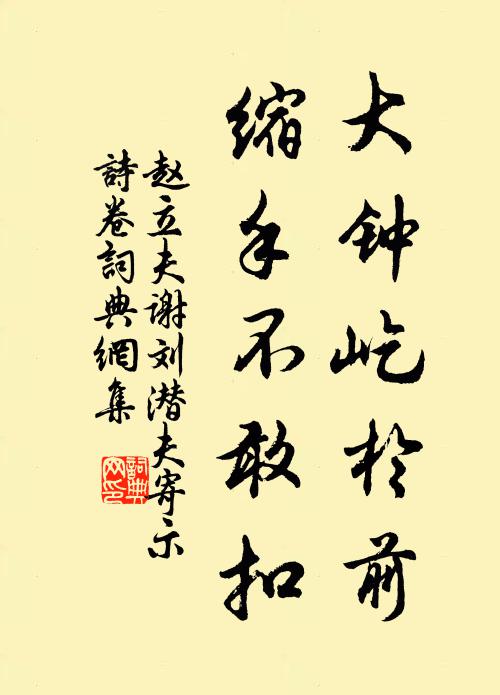 大钟屹於前
缩手不敢扣
赵立夫谢刘潜夫寄示
詩卷詞典網集
詞典网